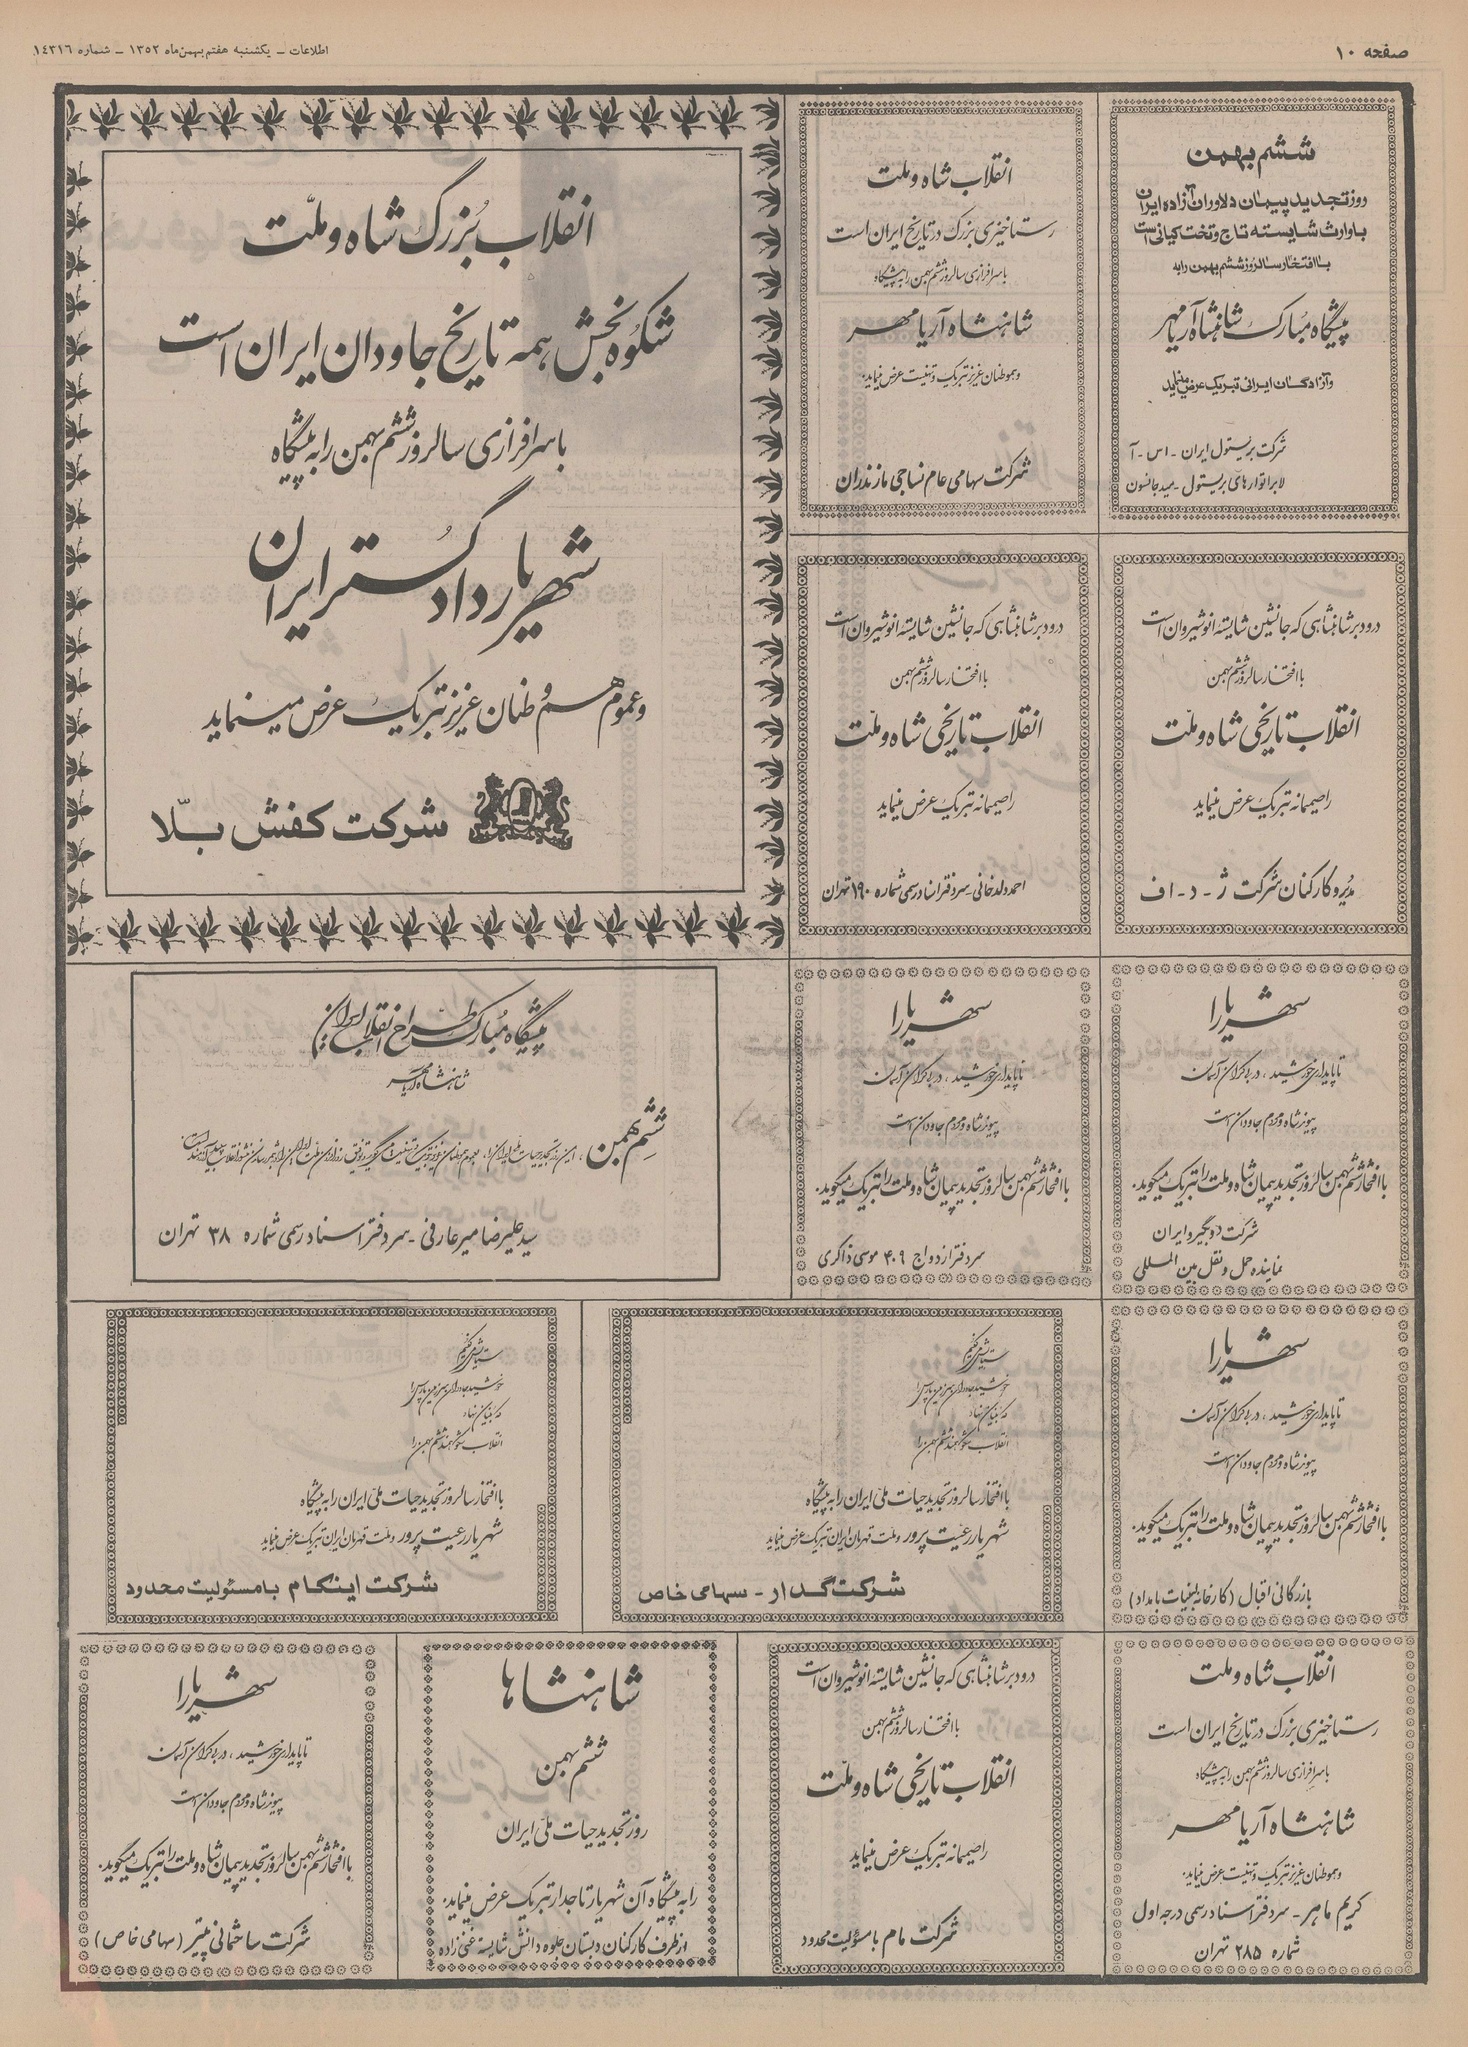 صفحه ۱۰
اطلاعات ــ یکشنبه هفتم بهمن‌ماه ۱۳۵۲ ــ شماره ۱٤۳۱٦
ششم بهمن
روز تجدید پیمان دلاوران آزاده ایران
با وارث شایسته تاج و تخت کیانی است
با افتخار سالروز ششم بهمن را به
پیشگاه مبارک شاهنشاه آریامهر
و آزادگان ایرانی تبریک عرض مینماید
شرکت بریستول ایران - اس - آ
لابراتوارهای بریستول - میدجانسون
انقلاب شاه و ملت
رستاخیزی بزرگ در تاریخ ایران است
با سرافرازی سالروز ششم بهمن را به پیشگاه
شاهنشاه آریامهر
و هموطنان عزیز تبریک و تهنیت عرض مینماید.
شرکت سهامی عام نساجی مازندران
انقلاب بُزرگ شاه و ملّت
شکوُه بخش همه تاریخ جاودان ایران است
با سرافرازی سالروز ششم بهمن را به پیشگاه
شهریار دادگُستر ایران
و عموم هموُطنان عزیز تبریک عرض مینماید
شرکت کفش بلّا
درود بر شاهنشاهی که جانشین شایسته انوشیروان است
با افتخار سالروز ششم بهمن
انقلاب تاریخی شاه و ملّت
را صمیمانه تبریک عرض مینماید
مدیر و کارکنان شرکت ژ - د - اف
درود بر شاهنشاهی که جانشین شایسته انوشیروان است
با افتخار سالروز ششم بهمن
انقلاب تاریخی شاه و ملّت
را صمیمانه تبریک عرض مینماید
احمد ولدخانی - سردفتر اسناد رسمی شماره ۱۹۰ تهران
شهریارا
تا پایداری خورشید ، در بیکران آسمان
پیوند شاه و مردم جاودان است
با افتخار ششم بهمن سالروز تجدید پیمان شاه و ملت را تبریک میگوید.
شرکت دوبگیر و ایران
نماینده حمل و نقل بین المللی
شهریارا
تا پایداری خورشید ، در بیکران آسمان
پیوند شاه و مردم جاودان است
با افتخار ششم بهمن سالروز تجدید پیمان شاه و ملت را تبریک میگوید.
سردفتر ازدواج ۴۰۹ موسی ذاکری
پیشگاه مبارک طراح انقلاب ایران
شاهنشاه آریامهر
ششم بهمن
سید علیرضا میرعارفی - سردفتر اسناد رسمی شماره ۳۸ تهران
شهریارا
تا پایداری خورشید ، در بیکران آسمان
پیوند شاه و مردم جاودان است
با افتخار ششم بهمن سالروز تجدید پیمان شاه و ملت را تبریک میگوید.
بازرگانی اقبال (کارخانه لبنیات بامداد)
ستایش می‌کنیم
خورشید جاودان سرزمین پارس را
که بنیان نهاد
انقلاب شکوهمند ششم بهمن را
با افتخار سالروز تجدید حیات ملّی ایران را به پیشگاه
شهریار رعیت پرور و ملت قهرمان ایران تبریک عرض مینماید
شرکت گدار - سهامی خاص
ستایش می‌کنیم
خورشید جاودان سرزمین پارس را
که بنیان نهاد
انقلاب شکوهمند ششم بهمن را
با افتخار سالروز تجدید حیات ملّی ایران را به پیشگاه
شهریار رعیت پرور و ملت قهرمان ایران تبریک عرض مینماید
شرکت اینکام با مسئولیت محدود
انقلاب شاه و ملت
رستاخیزی بزرگ در تاریخ ایران است
با سرافرازی سالروز ششم بهمن را به پیشگاه
شاهنشاه آریامهر
و هموطنان عزیز تبریک و تهنیت عرض مینماید.
کریم ماهر - سردفتر اسناد رسمی درجه اول
شماره ۲۸۵ تهران
درود بر شاهنشاهی که جانشین شایسته انوشیروان است
با افتخار سالروز ششم بهمن
انقلاب تاریخی شاه و ملّت
را صمیمانه تبریک عرض مینماید
شرکت مام با مسؤلیت محدود
شاهنشاها
ششم بهمن
روز تجدید حیات ملّی ایران
را به پیشگاه آن شهریار تاجدار تبریک عرض مینماید.
از طرف کارکنان دبستان جلوه دانش شایسته غنی زاده
شهریارا
تا پایداری خورشید ، در بیکران آسمان
پیوند شاه و مردم جاودان است
با افتخار ششم بهمن سالروز تجدید پیمان شاه و ملت را تبریک میگوید.
شرکت ساختمانی پلیتر (سهامی خاص)